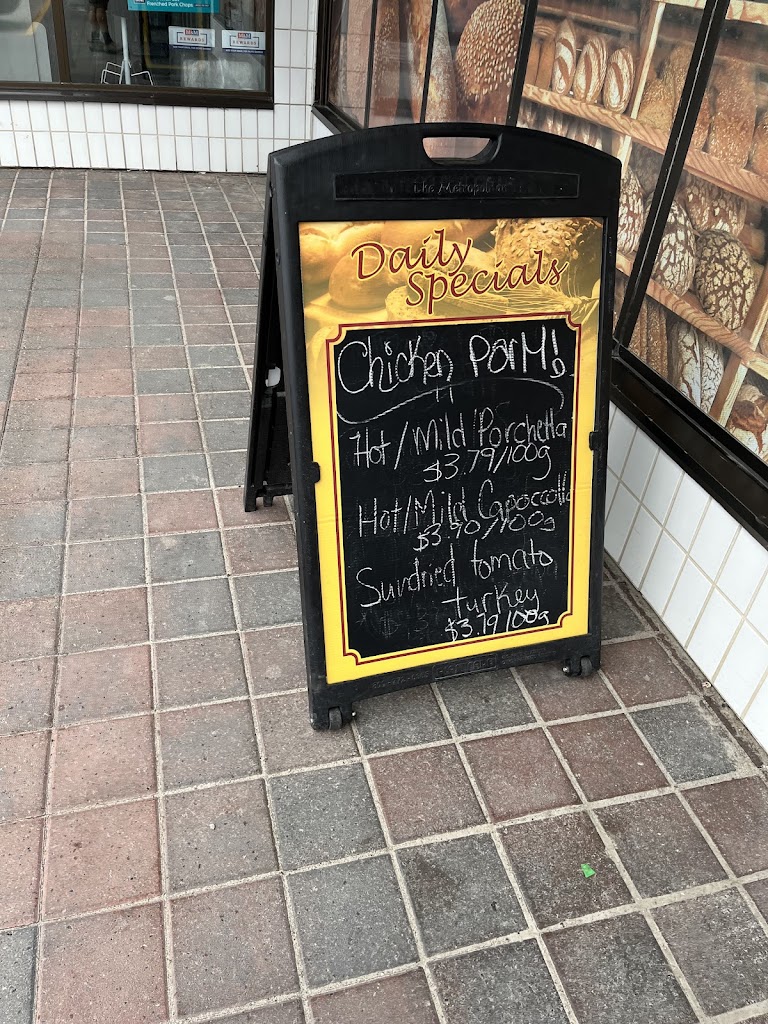 Frenched Pork Chops
REWARDS
REWARDS
The Metropolitan
Daily
Specials
Chicken ParM!
Hot/Mild Porchetta
$3.79/100g
Hot/Mild Capoccolla
$3.90/100g
Sundried tomato
turkey
$3.79/100g